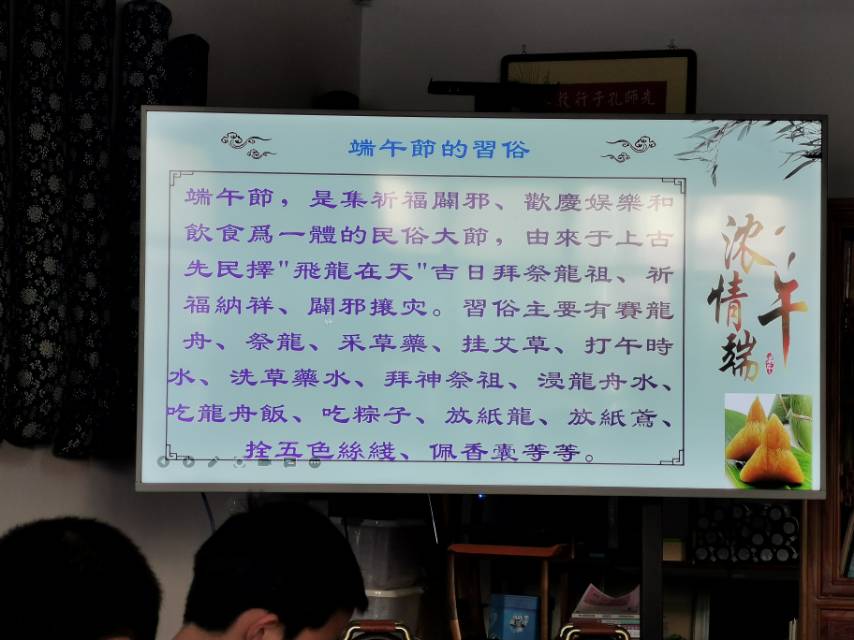 端午節的習俗
端午節，是集祈福闢邪、歡慶娱樂和
飲食爲一體的民俗大節，由來于上古
先民擇"飛龍在天"吉日拜祭龍祖、祈
福納祥、闢邪攘灾。習俗主要有賽龍
舟、祭龍、采草藥、挂艾草、打午時
水、洗草藥水、拜神祭祖、浸龍舟水、
吃龍舟飯、吃粽子、放紙龍、放紙鳶、
拴五色絲綫、佩香囊等等。
浓情端午
光師孔子行